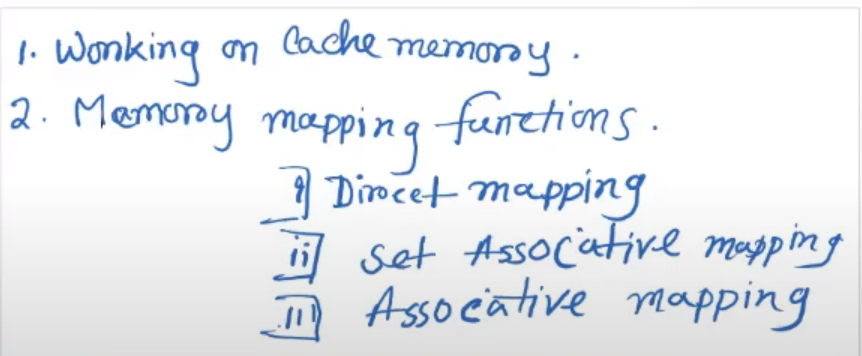 1. Working on Cache memory.
2. Memory mapping functions.
i] Direct mapping
ii] Set Associative mapping
iii] Associative mapping